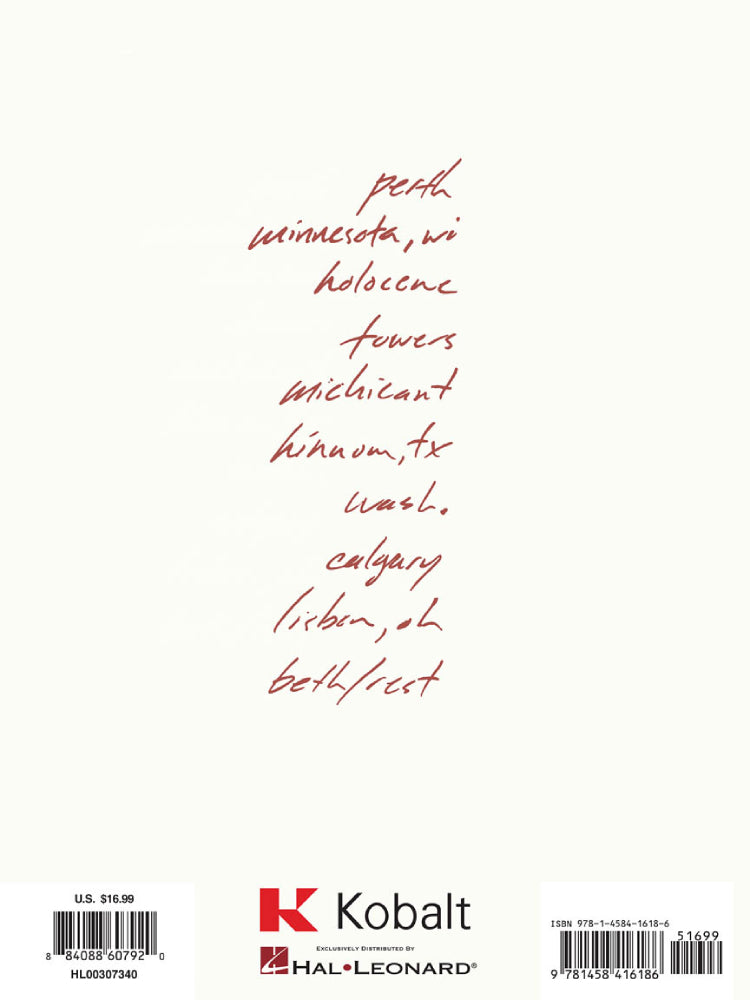 perth
minnesota, wi
holocene
towers
michicant
hinnom, tx
wash.
calgary
lisbon, oh
beth/rest
U.S. $16.99
8 84088 60792 0
HL00307340
Kobalt
EXCLUSIVELY DISTRIBUTED BY
HAL•LEONARD®
ISBN 978-1-4584-1618-6
51699
9 781458 416186